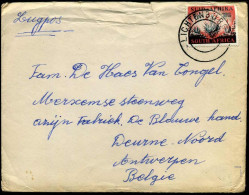 Lugpos
SUID-AFRIKA
LICHTENBURG
SOUTH AFRICA
Fam. De Haes Van Tongel.
Merxemse steenweg
azijn Fabriek, De Blauwe hand,
Deurne. Noord
Antwerpen
Belgie